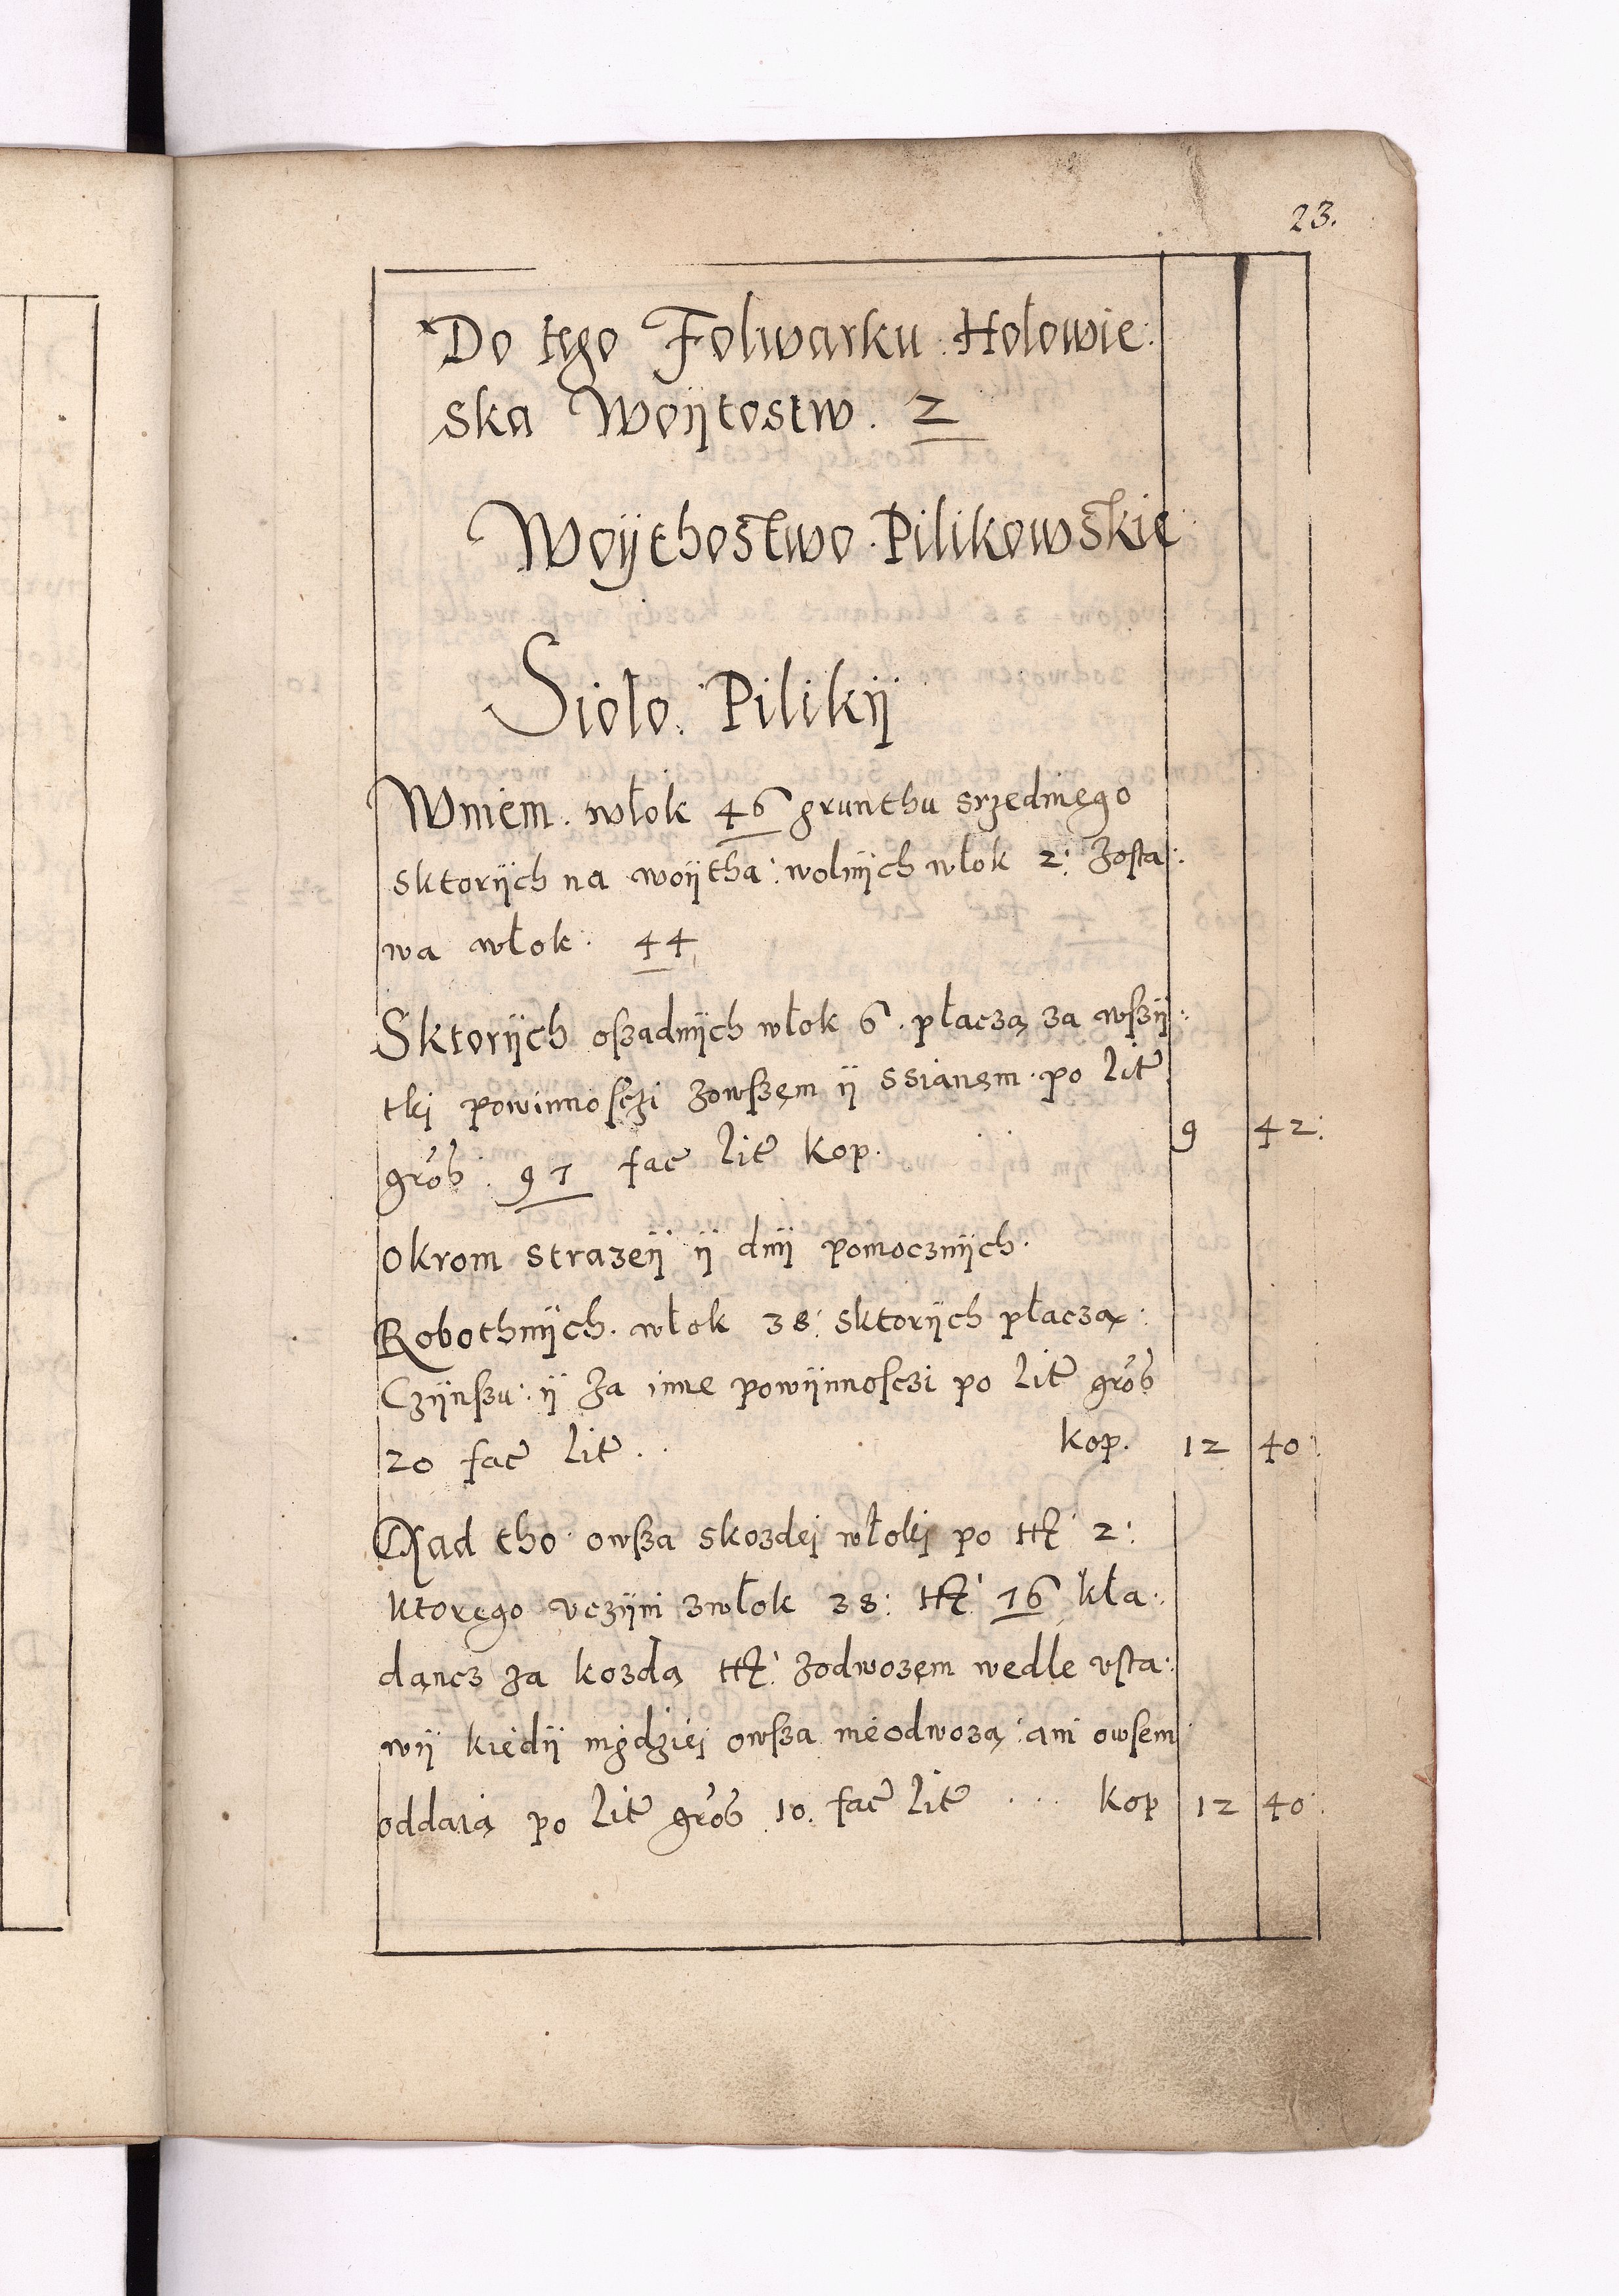 23.
Do tego Folwarku Hołowie:
ska Woijtostw. 2
Woijthostwo Pilikowskie
Sioło. Pilikij
Wniem. włok 46 grunthu srzedniego
sktorijch na woijtha: wolnijch włok 2: Zosta:
wa włok. 44
Sktorijch oszadnijch włok 6. płaczą za wszij:
tkj powinnosczi zowszem ij ssianem po lit
grob. 97 fac lit kop. 9 42:
okrom strazeij ij dnij pomocznijch.
Robothnijch. włok 38: sktorijch płaczą:
Czijnszu: ij Za inne powijnnosczi po lit grob
20 fac lit . . kop. 12 40
Nad tho owsza skozdej włokj po 2:
ktorego vczijni zwłok 38: 16 kła:
dancz Za kozdą Zodwozem wedle vsta:
wij kiedij nigdziej owsza nieodwozą: ani owsem
oddaią po lit grob 10. fac lit . . . kop 12 40